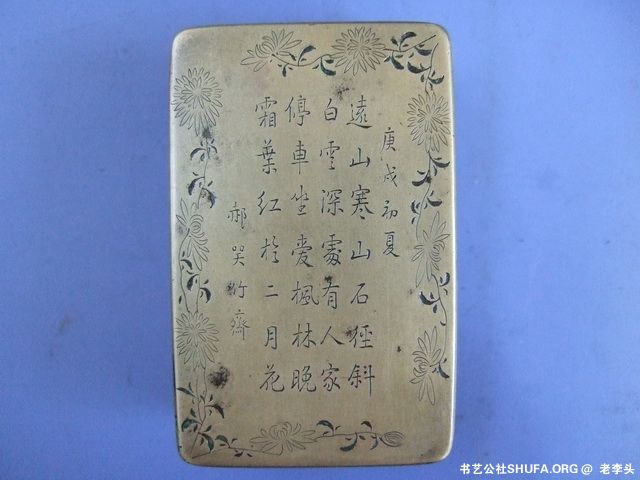 庚戌初夏
遠山寒山石徑斜
白雲深處有人家
停車坐愛楓林晚
霜葉紅於二月花
郝 竹齋
书艺公社SHUFA.ORG @ 老李头